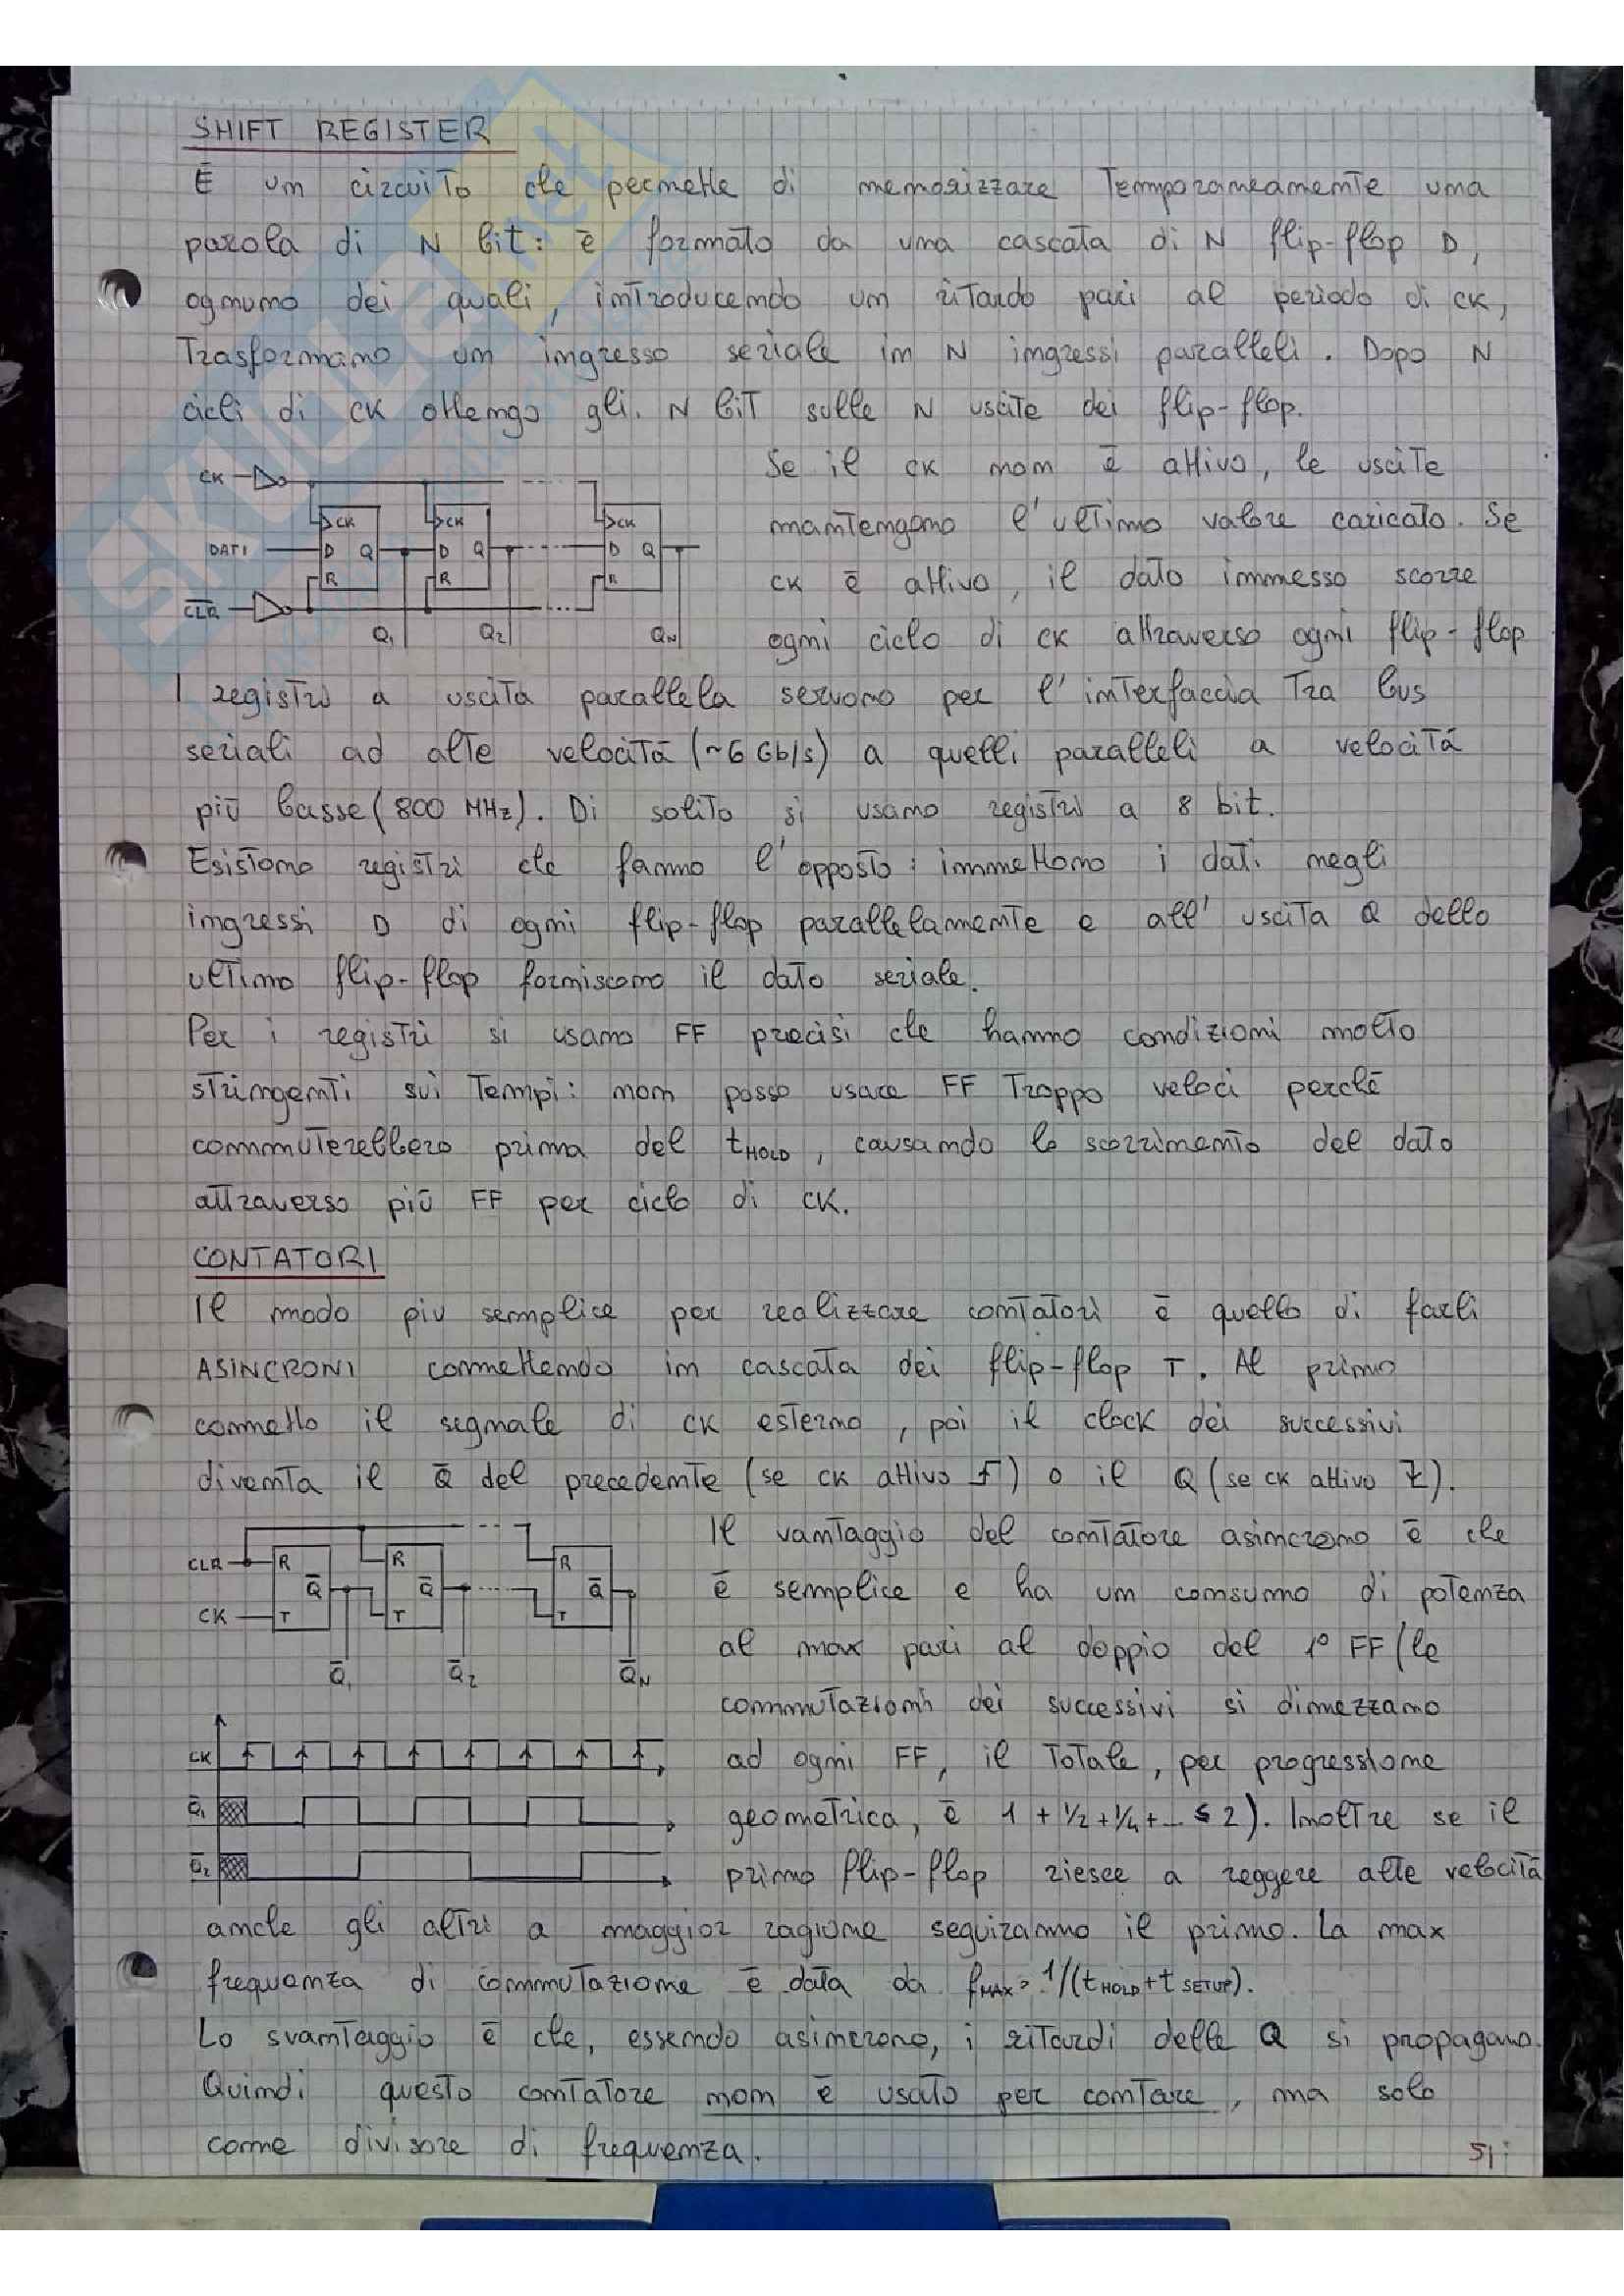 SHIFT REGISTER
È un circuito che permette di memorizzare temporaneamente una
parola di N bit: è formato da una cascata di N flip-flop D,
ognuno dei quali, introducendo un ritardo pari al periodo di CK,
trasformano un ingresso seriale in N ingressi paralleli. Dopo N
cicli di CK ottengo gli N BIT sulle N uscite dei flip-flop.
Se il CK non è attivo, le uscite
mantengono l'ultimo valore caricato. Se
CK è attivo, il dato immesso scorre
ogni ciclo di CK attraverso ogni flip-flop
CK
CK CK CK
DATI D Q D Q D Q
R R R
CLR
Q1 Q2 QN
I registri a uscita parallela servono per l'interfaccia tra bus
seriali ad alte velocità (~6 Gb/s) a quelli paralleli a velocità
più basse (800 MHz). Di solito si usano registri a 8 bit.
Esistono registri che fanno l'opposto: immettono i dati negli
ingressi D di ogni flip-flop parallelamente e all'uscita Q dello
ultimo flip-flop forniscono il dato seriale.
Per i registri si usano FF precisi che hanno condizioni molto
stringenti sui tempi: non posso usare FF troppo veloci perché
commuterebbero prima del tHOLD, causando lo scorrimento del dato
attraverso più FF per ciclo di CK.
CONTATORI
Il modo piu semplice per realizzare contatori è quello di farli
ASINCRONI connettendo in cascata dei flip-flop T. Al primo
connetto il segnale di CK esterno, poi il clock dei successivi
diventa il Q̄ del precedente (se CK attivo ↑) o il Q (se CK attivo ↓).
Il vantaggio del contatore asincrono è che
è semplice e ha un consumo di potenza
al max pari al doppio del 1° FF (le
commutazioni dei successivi si dimezzano
ad ogni FF, il totale, per progressione
geometrica, è 1 + 1/2 + 1/4 + ... ≤ 2). Inoltre se il
primo flip-flop riesce a reggere alte velocità
CLR R R R
Q̄ Q̄ Q̄
CK T T T
Q̄1 Q̄2 Q̄N
CK
Q̄1
Q̄2
anche gli altri a maggior ragione seguiranno il primo. La max
frequenza di commutazione è data da fMAX = 1/(tHOLD + tSETUP).
Lo svantaggio è che, essendo asincrono, i ritardi delle Q si propagano.
Quindi questo contatore non è usato per contare, ma solo
come divisore di frequenza.
51